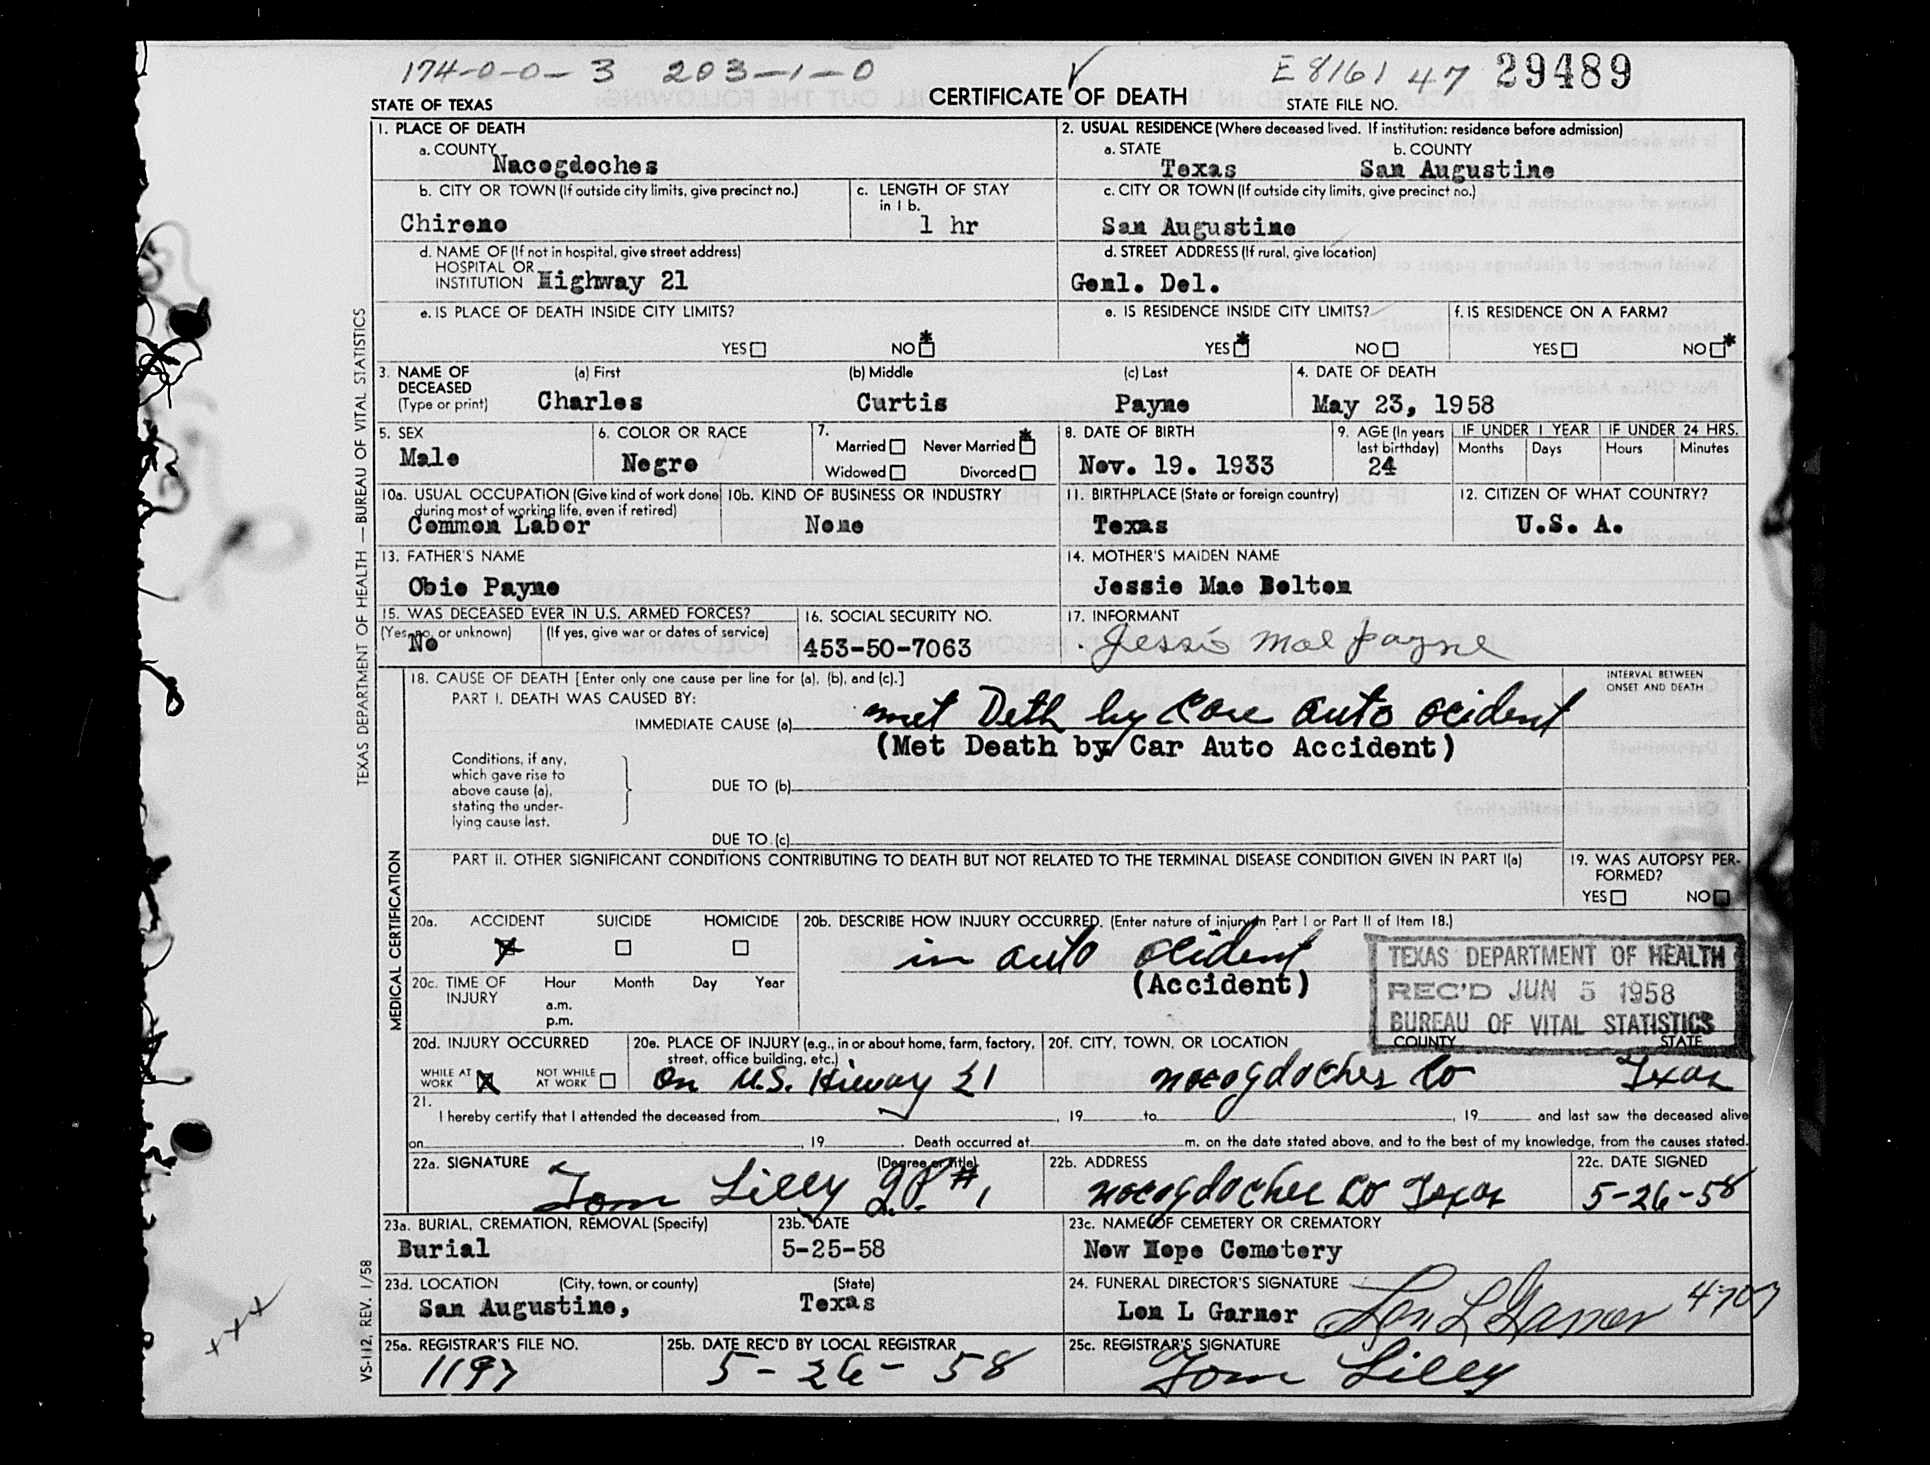 174-0-0-3 203-1-0 E 8161 47 29489
STATE OF TEXAS CERTIFICATE OF DEATH STATE FILE NO.
1. PLACE OF DEATH
a. COUNTY
Nacogdoches
2. USUAL RESIDENCE (Where deceased lived. If institution: residence before admission)
a. STATE b. COUNTY
Texas San Augustine
b. CITY OR TOWN (If outside city limits, give precinct no.)
Chireno
c. LENGTH OF STAY
in 1 b.
1 hr
c. CITY OR TOWN (If outside city limits, give precinct no.)
San Augustine
d. NAME OF (If not in hospital, give street address)
HOSPITAL OR
INSTITUTION Highway 21
d. STREET ADDRESS (If rural, give location)
Genl. Del.
e. IS PLACE OF DEATH INSIDE CITY LIMITS?
YES NO *
e. IS RESIDENCE INSIDE CITY LIMITS?
YES * NO
f. IS RESIDENCE ON A FARM?
YES NO *
3. NAME OF
DECEASED
(Type or print)
(a) First (b) Middle (c) Last
Charles Curtis Payne
4. DATE OF DEATH
May 23, 1958
5. SEX
Male
6. COLOR OR RACE
Negro
7.
Married Never Married *
Widowed Divorced
8. DATE OF BIRTH
Nov. 19. 1933
9. AGE (In years
last birthday)
24
IF UNDER 1 YEAR
Months Days
IF UNDER 24 HRS.
Hours Minutes
10a. USUAL OCCUPATION (Give kind of work done
during most of working life, even if retired)
Common Labor
10b. KIND OF BUSINESS OR INDUSTRY
None
11. BIRTHPLACE (State or foreign country)
Texas
12. CITIZEN OF WHAT COUNTRY?
U.S. A.
13. FATHER'S NAME
Obie Payne
14. MOTHER'S MAIDEN NAME
Jessie Mae Bolton
15. WAS DECEASED EVER IN U.S. ARMED FORCES?
(Yes, no, or unknown) (If yes, give war or dates of service)
No
16. SOCIAL SECURITY NO.
453-50-7063
17. INFORMANT
Jessie Mae Payne
18. CAUSE OF DEATH [Enter only one cause per line for (a), (b), and (c).]
PART I. DEATH WAS CAUSED BY:
IMMEDIATE CAUSE (a) met Deth by Care auto ocident
(Met Death by Car Auto Accident)
INTERVAL BETWEEN
ONSET AND DEATH
Conditions, if any,
which gave rise to
above cause (a),
stating the under-
lying cause last.
DUE TO (b)
DUE TO (c)
PART II. OTHER SIGNIFICANT CONDITIONS CONTRIBUTING TO DEATH BUT NOT RELATED TO THE TERMINAL DISEASE CONDITION GIVEN IN PART I(a)
19. WAS AUTOPSY PER-
FORMED?
YES NO
20a. ACCIDENT SUICIDE HOMICIDE
X
20b. DESCRIBE HOW INJURY OCCURRED. (Enter nature of injury in Part I or Part II of Item 18.)
in auto ocident
(Accident)
TEXAS DEPARTMENT OF HEALTH
REC'D JUN 5 1958
BUREAU OF VITAL STATISTICS
20c. TIME OF
INJURY
Hour Month Day Year
a.m.
p.m.
20d. INJURY OCCURRED
WHILE AT
WORK X
NOT WHILE
AT WORK
20e. PLACE OF INJURY (e.g., in or about home, farm, factory,
street, office building, etc.)
On U.S. Hiway 21
20f. CITY, TOWN, OR LOCATION COUNTY STATE
nocogdoches Co Texas
21.
I hereby certify that I attended the deceased from , 19 to , 19 and last saw the deceased alive
on , 19 . Death occurred at m. on the date stated above, and to the best of my knowledge, from the causes stated.
22a. SIGNATURE (Degree or Title)
Tom Lilly J.P. #1
22b. ADDRESS
nocogdoches Co Texas
22c. DATE SIGNED
5-26-58
23a. BURIAL, CREMATION, REMOVAL (Specify)
Burial
23b. DATE
5-25-58
23c. NAME OF CEMETERY OR CREMATORY
New Hope Cemetery
23d. LOCATION (City, town, or county) (State)
San Augustine, Texas
24. FUNERAL DIRECTOR'S SIGNATURE
Lon L Garner Lon L Garner 4707
25a. REGISTRAR'S FILE NO.
1197
25b. DATE REC'D BY LOCAL REGISTRAR
5-26-58
25c. REGISTRAR'S SIGNATURE
Tom Lilly
TEXAS DEPARTMENT OF HEALTH — BUREAU OF VITAL STATISTICS
MEDICAL CERTIFICATION
VS-112, REV. 1/58
xxx